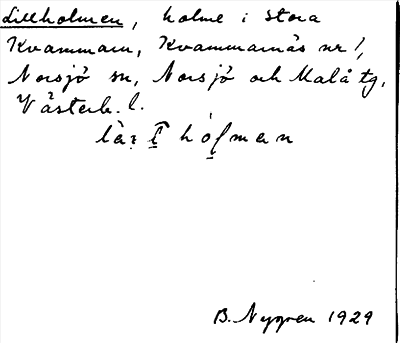 Lillholmen, holme i stora
Kvammarn, Kvammarnäs nr 1,
Norsjö sn, Norsjö och Malå tg,
Västerb. l.
hólmen
B. Nygren 1929